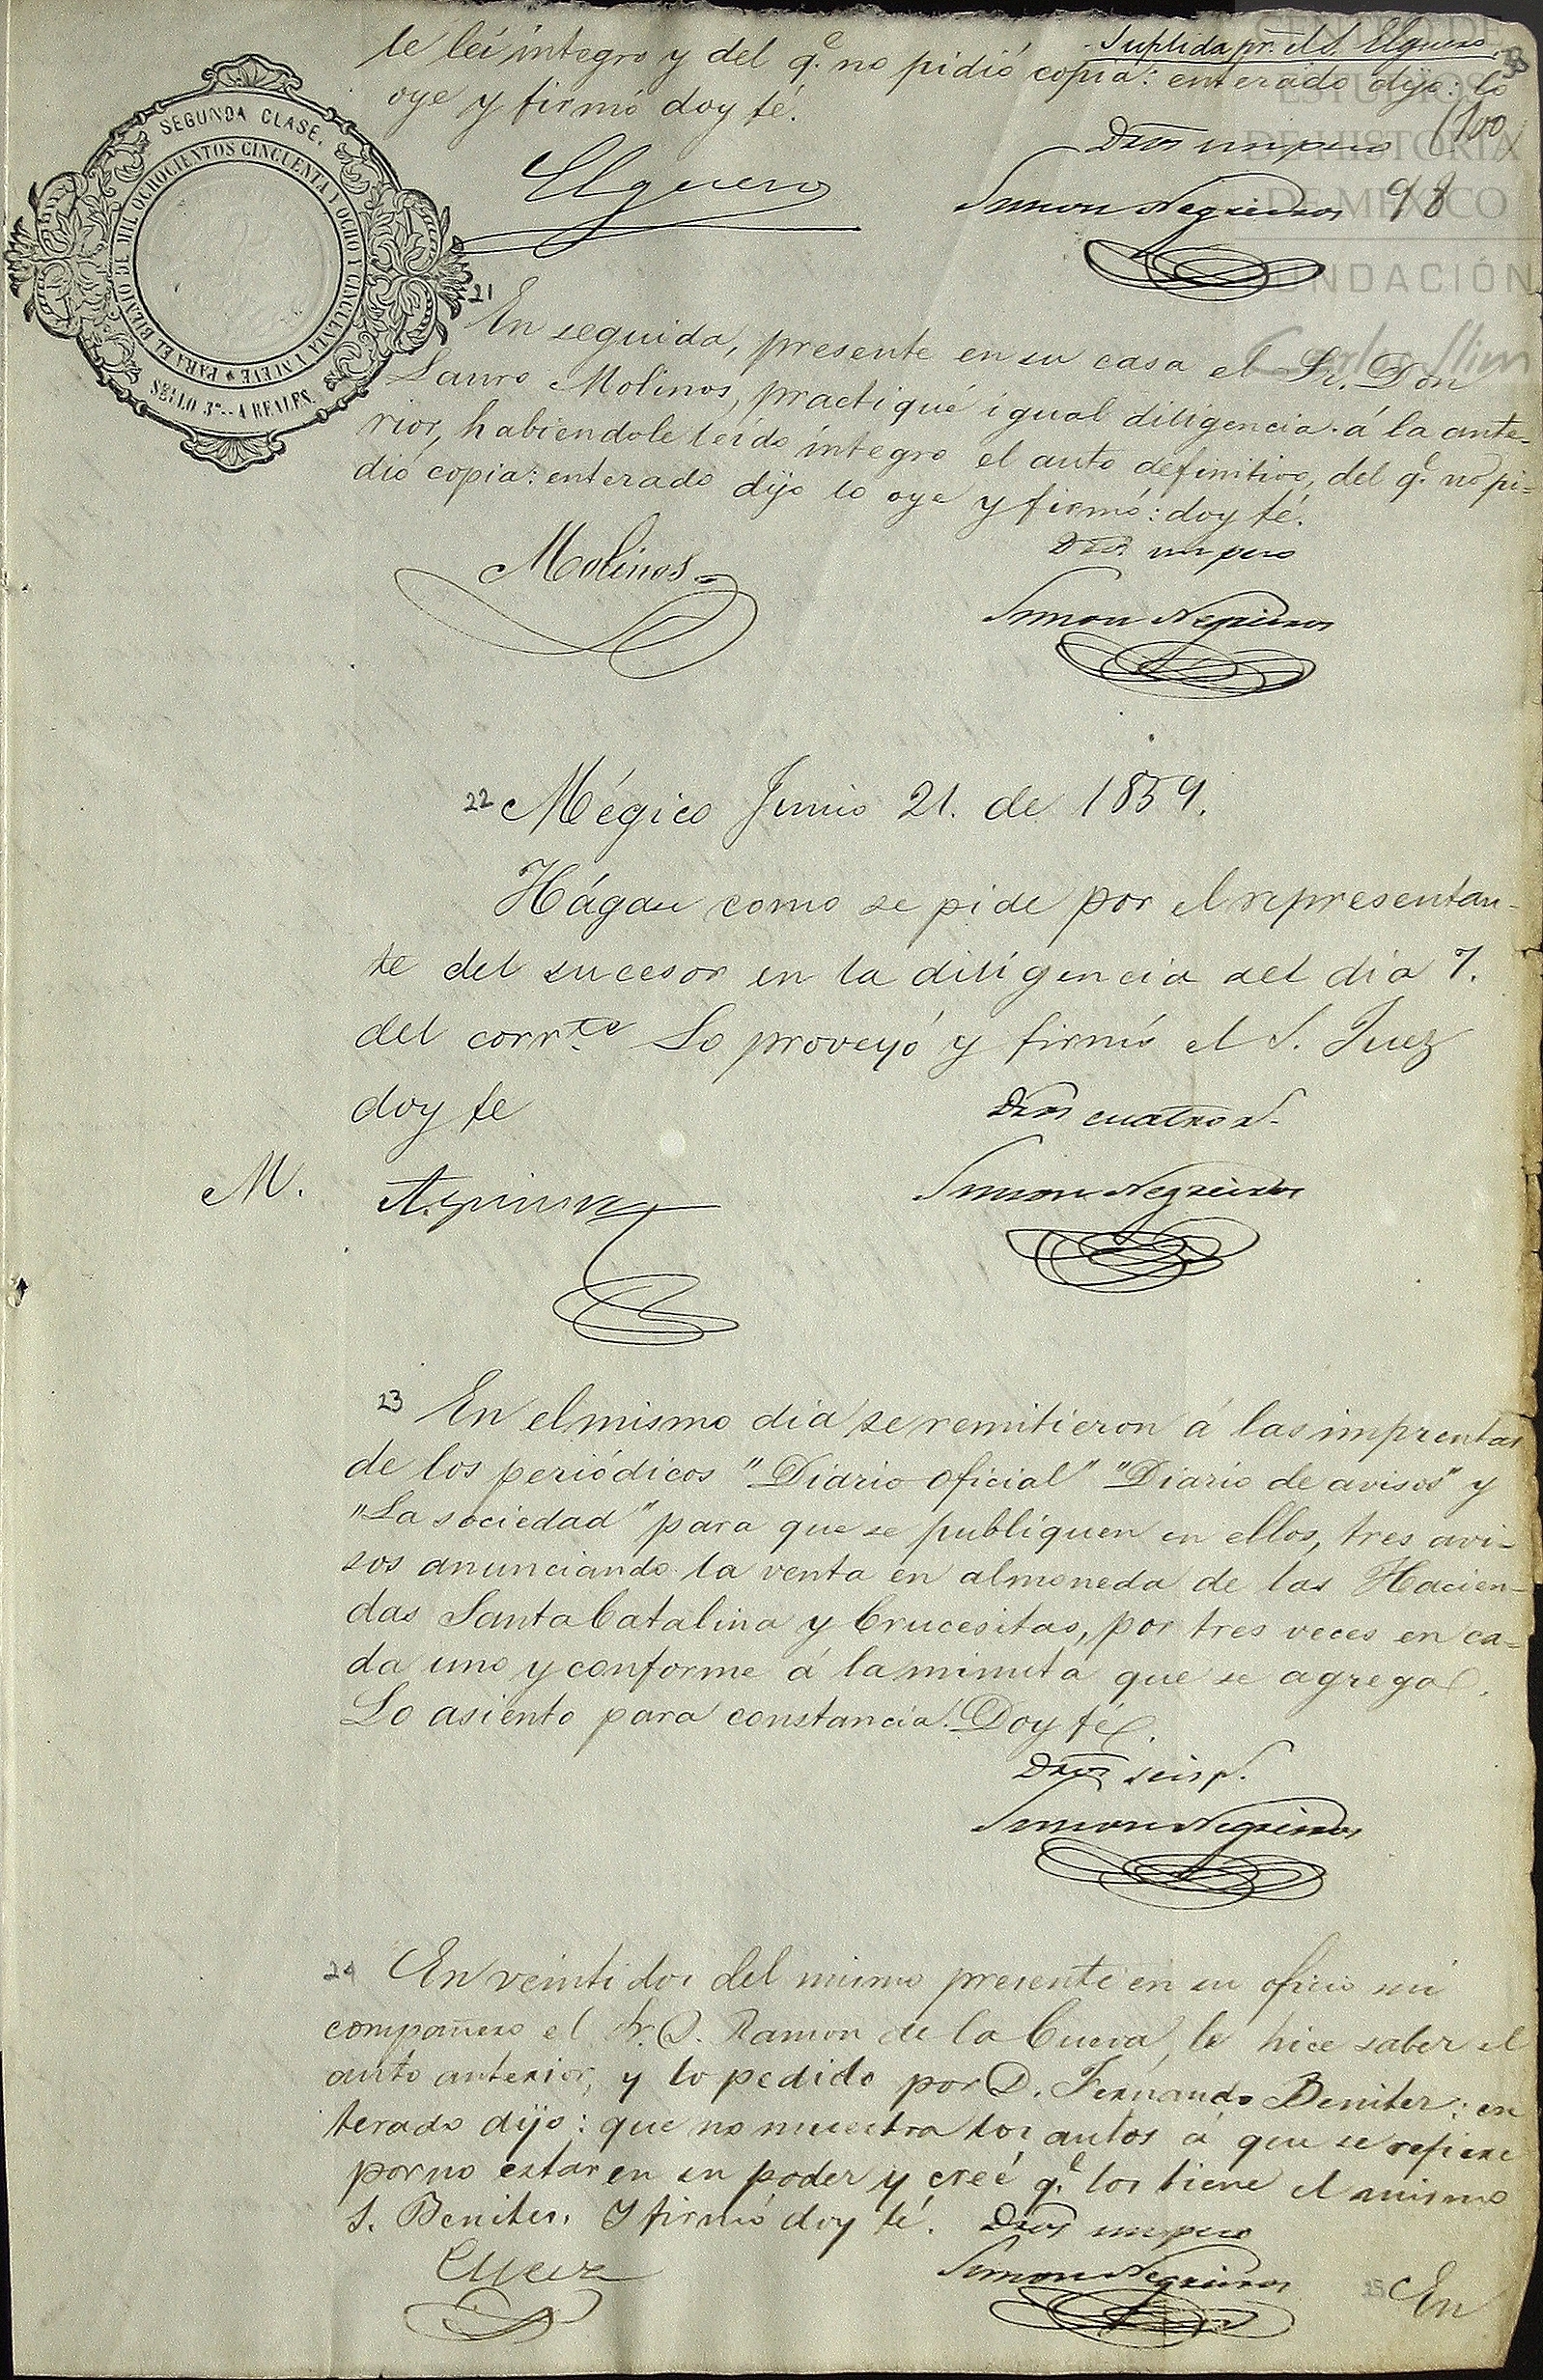 Suplida pr. el S. Elguero.
le leí integro y del q.e no pidió copia: enterado dijo: lo
oye y firmó doy fé.
100
Dros un peso
Elguero
Simon Negreiros
98
CENTRO DE
ESTUDIOS
DE HISTORIA
DE MÉXICO
FUNDACIÓN
Carlos Slim
SEGUNDA CLASE.
PARA EL BIENIO DE MIL OCHOCIENTOS CINCUENTA Y OCHO Y CINCUENTA Y NUEVE
SELLO 3º.-4 REALES.
21 En seguida, presente en su casa el Sr. Don
Lauro Molinos, practiqué igual diligencia á la ante-
rior, habiendole leido integro el auto definitivo, del q.e no pi-
dió copia: enterado dijo lo oye y firmó: doy fé.
Dros un peso
Molinos
Simon Negreiros
22 Mégico Junio 21. de 1859.
Hágase como se pide por el representan-
te del sucesor en la diligencia del dia 7.
del corr.te Lo proveyó y firmó el S. Juez
doy fe
Dros cuatro r.
M.
Simon Negreiros
23 En el mismo dia se remitieron á las imprentas
de los periódicos "Diario oficial" "Diario de avisos" y
"La sociedad" para que se publiquen en ellos, tres avi-
sos anunciando la venta en almoneda de las Hacien-
das Santa Catalina y Crucesitas, por tres veces en ca-
da uno y conforme á la minuta que se agrega.
Lo asiento para constancia. Doy fé.
Dros seis r.
Simon Negreiros
24 En veintidos del mismo presente en su oficio mi
compañero el Sr. D. Ramon de la Cueva, le hice saber el
auto anterior, y lo pedido por D. Fernando Beniter: en
terado dijo: que no muestra los autos á que se refiere
por no estar en su poder y creé q.e los tiene el mismo
S. Beniter. Y firmó doy fé. Dros un peso
Simon Negreiros
25 En